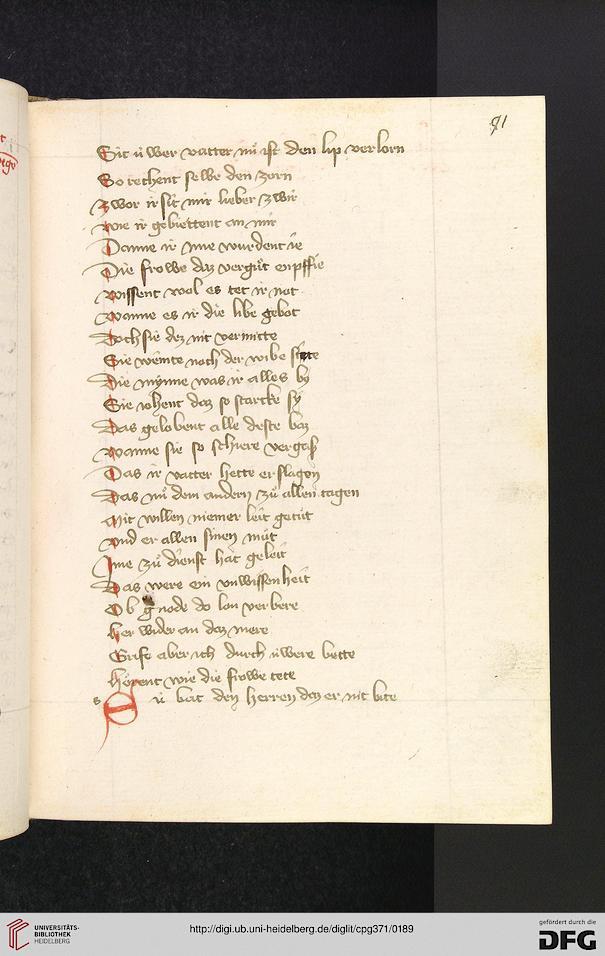 91
Sit ü wer vatter nü ist den lip verlorn
So rechent selbe den zorn
Zwor ir sit mir lieber zwir
Wie ir gebiettent an mir
Danne ir mie wurdent ie
Die frowe daz vergüt enpffie
Wissent wol es tet ir not
Wanne es ir die libe gebot
Doch sie dez nit vermitte
Sie weinte noch der wibe sitte
Die mynne was ir alles by
Sie iohent daz so starcke sy
Das gelobent alle deste baz
Wanne sie so schiere vergaß
Das ir vatter hette erslagen
Das nü dem andern zü allen tagen
Mit willen niemer leit getüt
Und er allen sinen müt
Ime zü dienst hat geleit
Das were ein unwissenheit
Ob g node do lon verbere
Her wider an daz mere
Grife aber ich durch üwere bette
Hörent wie die frowe tete
S ü bat den herren daz er nit bite
UNIVERSITÄTS-
BIBLIOTHEK
HEIDELBERG
http://digi.ub.uni-heidelberg.de/diglit/cpg371/0189
gefördert durch die
DFG